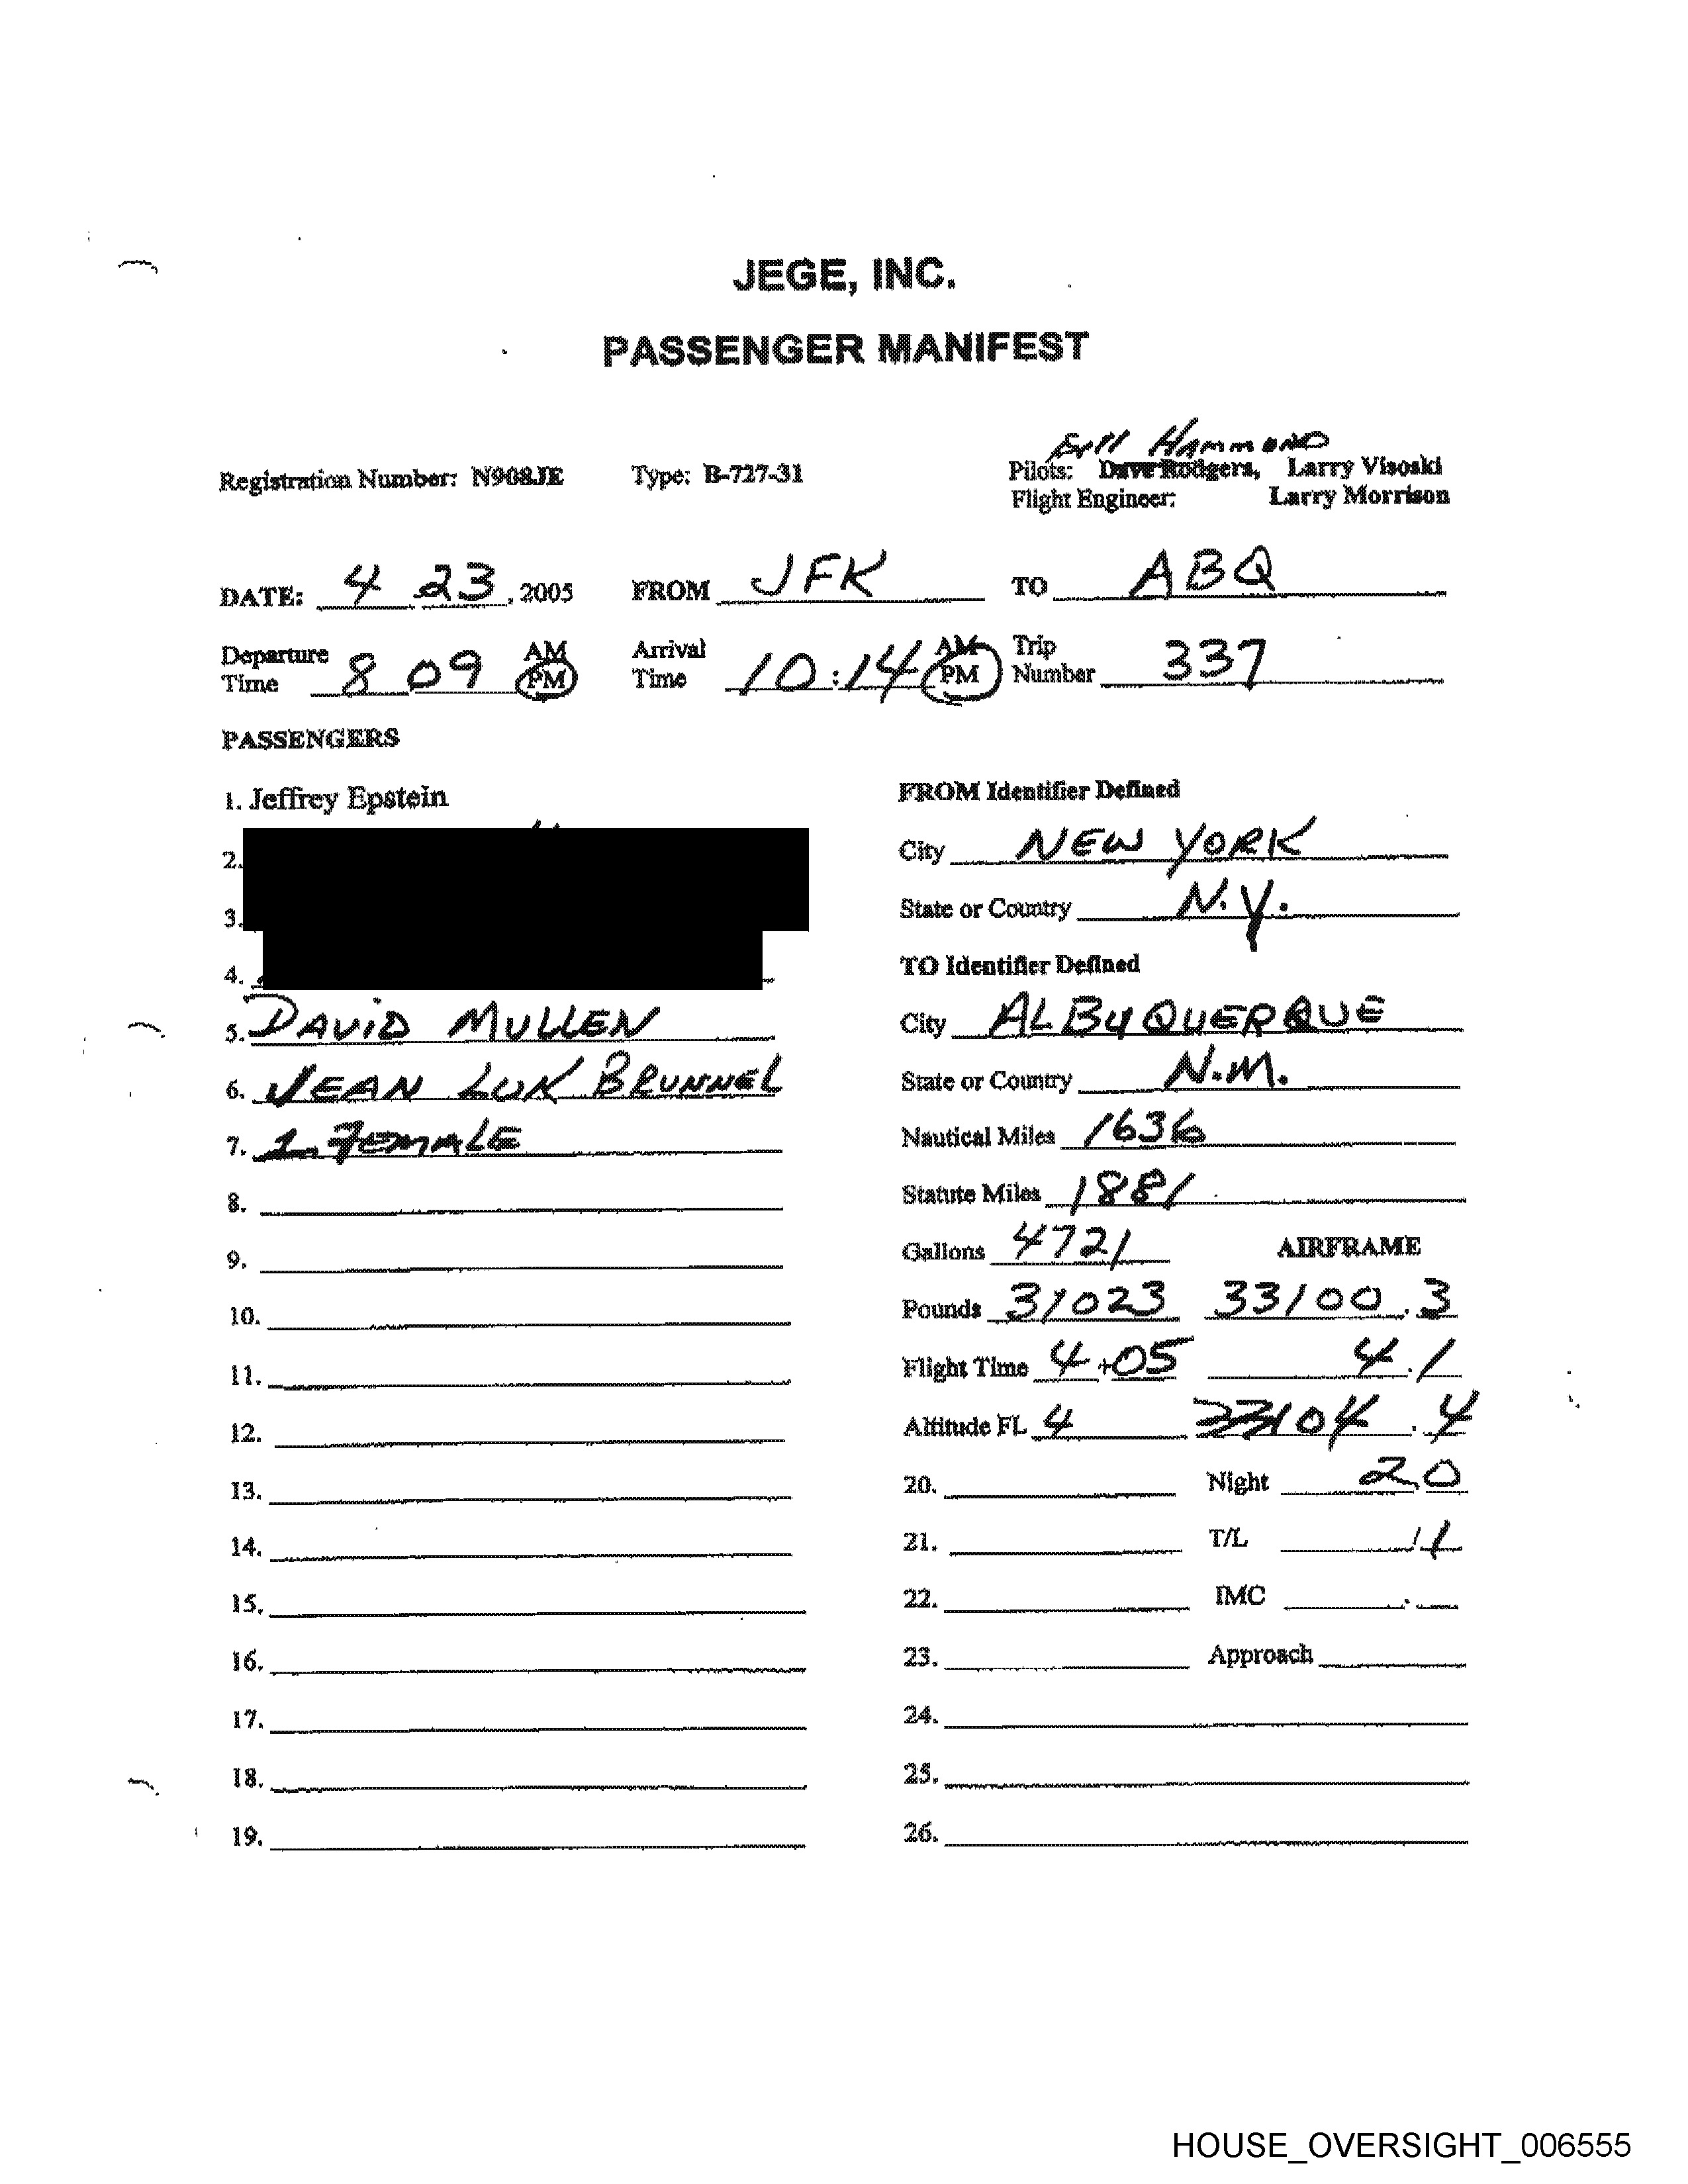 JEGE, INC.
PASSENGER MANIFEST
Bill HAMMOND
Registration Number: N908JE Type: B-727-31 Pilots: Dave Rodgers, Larry Visoski
Flight Engineer: Larry Morrison
DATE: 4 23, 2005 FROM JFK TO ABQ
Departure Time 8 09 AM PM Arrival Time 10:14 AM PM Trip Number 337
PASSENGERS
1. Jeffrey Epstein
2.
3.
4.
5. DAVID MULLEN
6. JEAN LUK BRUNNEL
7. 1 FEMALE
8.
9.
10.
11.
12.
13.
14.
15.
16.
17.
18.
19.
FROM Identifier Defined
City NEW YORK
State or Country N.Y.
TO Identifier Defined
City ALBUQUERQUE
State or Country N.M.
Nautical Miles 1636
Statute Miles 1881
Gallons 4721 AIRFRAME
Pounds 31023 33100.3
Flight Time 4+05 4.1
Altitude FL 4 33104.4
20. Night 2.0
21. T/L 1/1
22. IMC .
23. Approach
24.
25.
26.
HOUSE_OVERSIGHT_006555